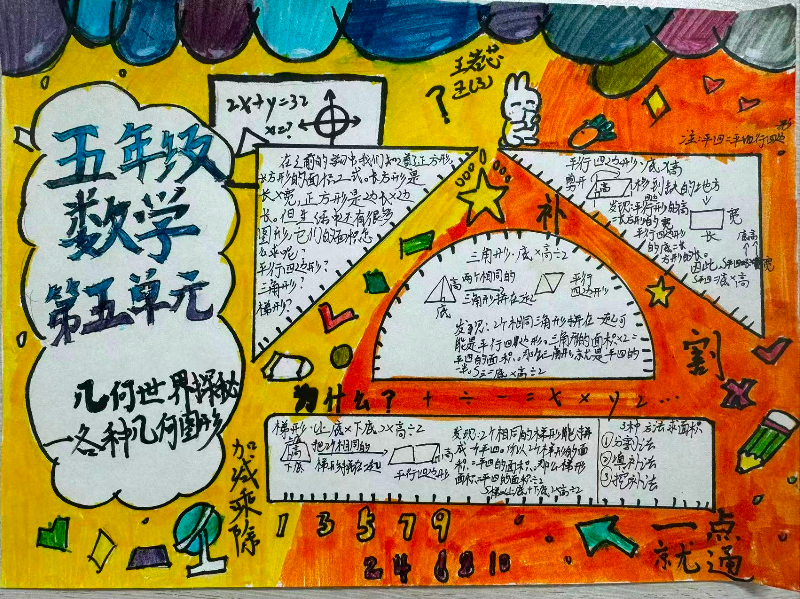 五年级
数学
第五单元
几何世界探秘
各种几何图形
加减乘除
2x+y=32
x=?
?
在之前的学习中我们知道了正方形,
长方形的面积公式。长方形是
长×宽,正方形是边长×边
长。但生活中还有很多
图形,它们的面积怎
么求呢?
平行四边形?
三角形?
梯形?
平行四边形:底×高
剪开
高
移到缺的地方
发现:平行四边形的高
=长方形的宽
平行四边形
的底=长
方形的长。
宽
长
底高
因此,S平四
S平四=底×高
补
割
三角形:底×高÷2
高
底
两个相同的
三角形拼在一起
平行
四边形
发现:2个相同三角形拼在一起可
能是平行四边形。三角形的面积×2=
平四的面积。那么三角形就是平四的
一半。S三=底×高÷2
为什么? + ÷ - = × x y 2 …
梯形:(上底×下底)×高÷2
高
下底
把2个相同的
梯形拼在一起
高
平行四边形
发现:2个相同的梯形能拼
成一个平四。所以2个梯形的面
积=平四的面积。那么梯形
面积=平四的面积÷2
3种方法求面积
①分割法
②填补法
③挖求法
1 3 5 7 9
2 4 6 8 10
一点
就通